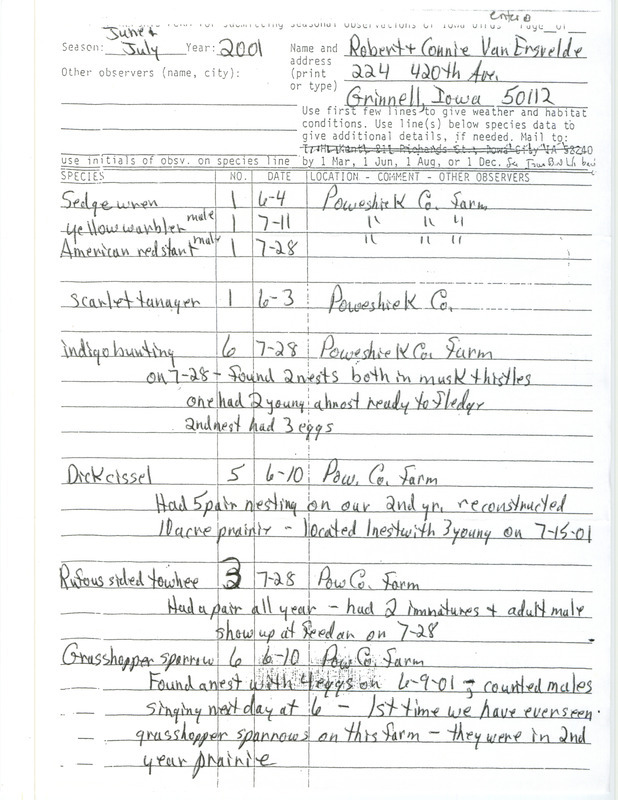 entered
form for submitting seasonal observations of Iowa birds Page of
Season: June & July Year: 2001
Name and address (print or type) Robert & Connie Van Ersvelde
224 420th Ave.
Grinnell, Iowa 50112
Other observers (name, city):
Use first few lines to give weather and habitat
conditions. Use line(s) below species data to
give additional details, if needed. Mail to:
Iowa City IA 52240
use initials of obsv. on species line by 1 Mar, 1 Jun, 1 Aug, or 1 Dec.
SPECIES NO. DATE LOCATION - COMMENT - OTHER OBSERVERS
Sedge wren 1 6-4 Poweshiek Co. Farm
yellow warbler male 1 7-11 " " "
American redstart male 1 7-28 " " "
Scarlet tanager 1 6-3 Poweshiek Co.
indigo bunting 6 7-28 Poweshiek Co. Farm
on 7-28 - found 2 nests both in musk thistles
one had 2 young almost ready to fledge
2nd nest had 3 eggs
Dickcissel 5 6-10 Pow. Co. Farm
Had 5 pair nesting on our 2nd yr. reconstructed
10 acre prairie - located 1 nest with 3 young on 7-15-01
Rufous sided towhee 3 7-28 Pow Co. Farm
Had a pair all year - had 2 immatures + adult male
show up at feeder on 7-28
Grasshopper sparrow 6 6-10 Pow. Co. Farm
Found a nest with 4 eggs on 6-9-01 ; counted males
singing next day at 6 - 1st time we have ever seen
grasshopper sparrows on this farm - they were in 2nd
year prairie